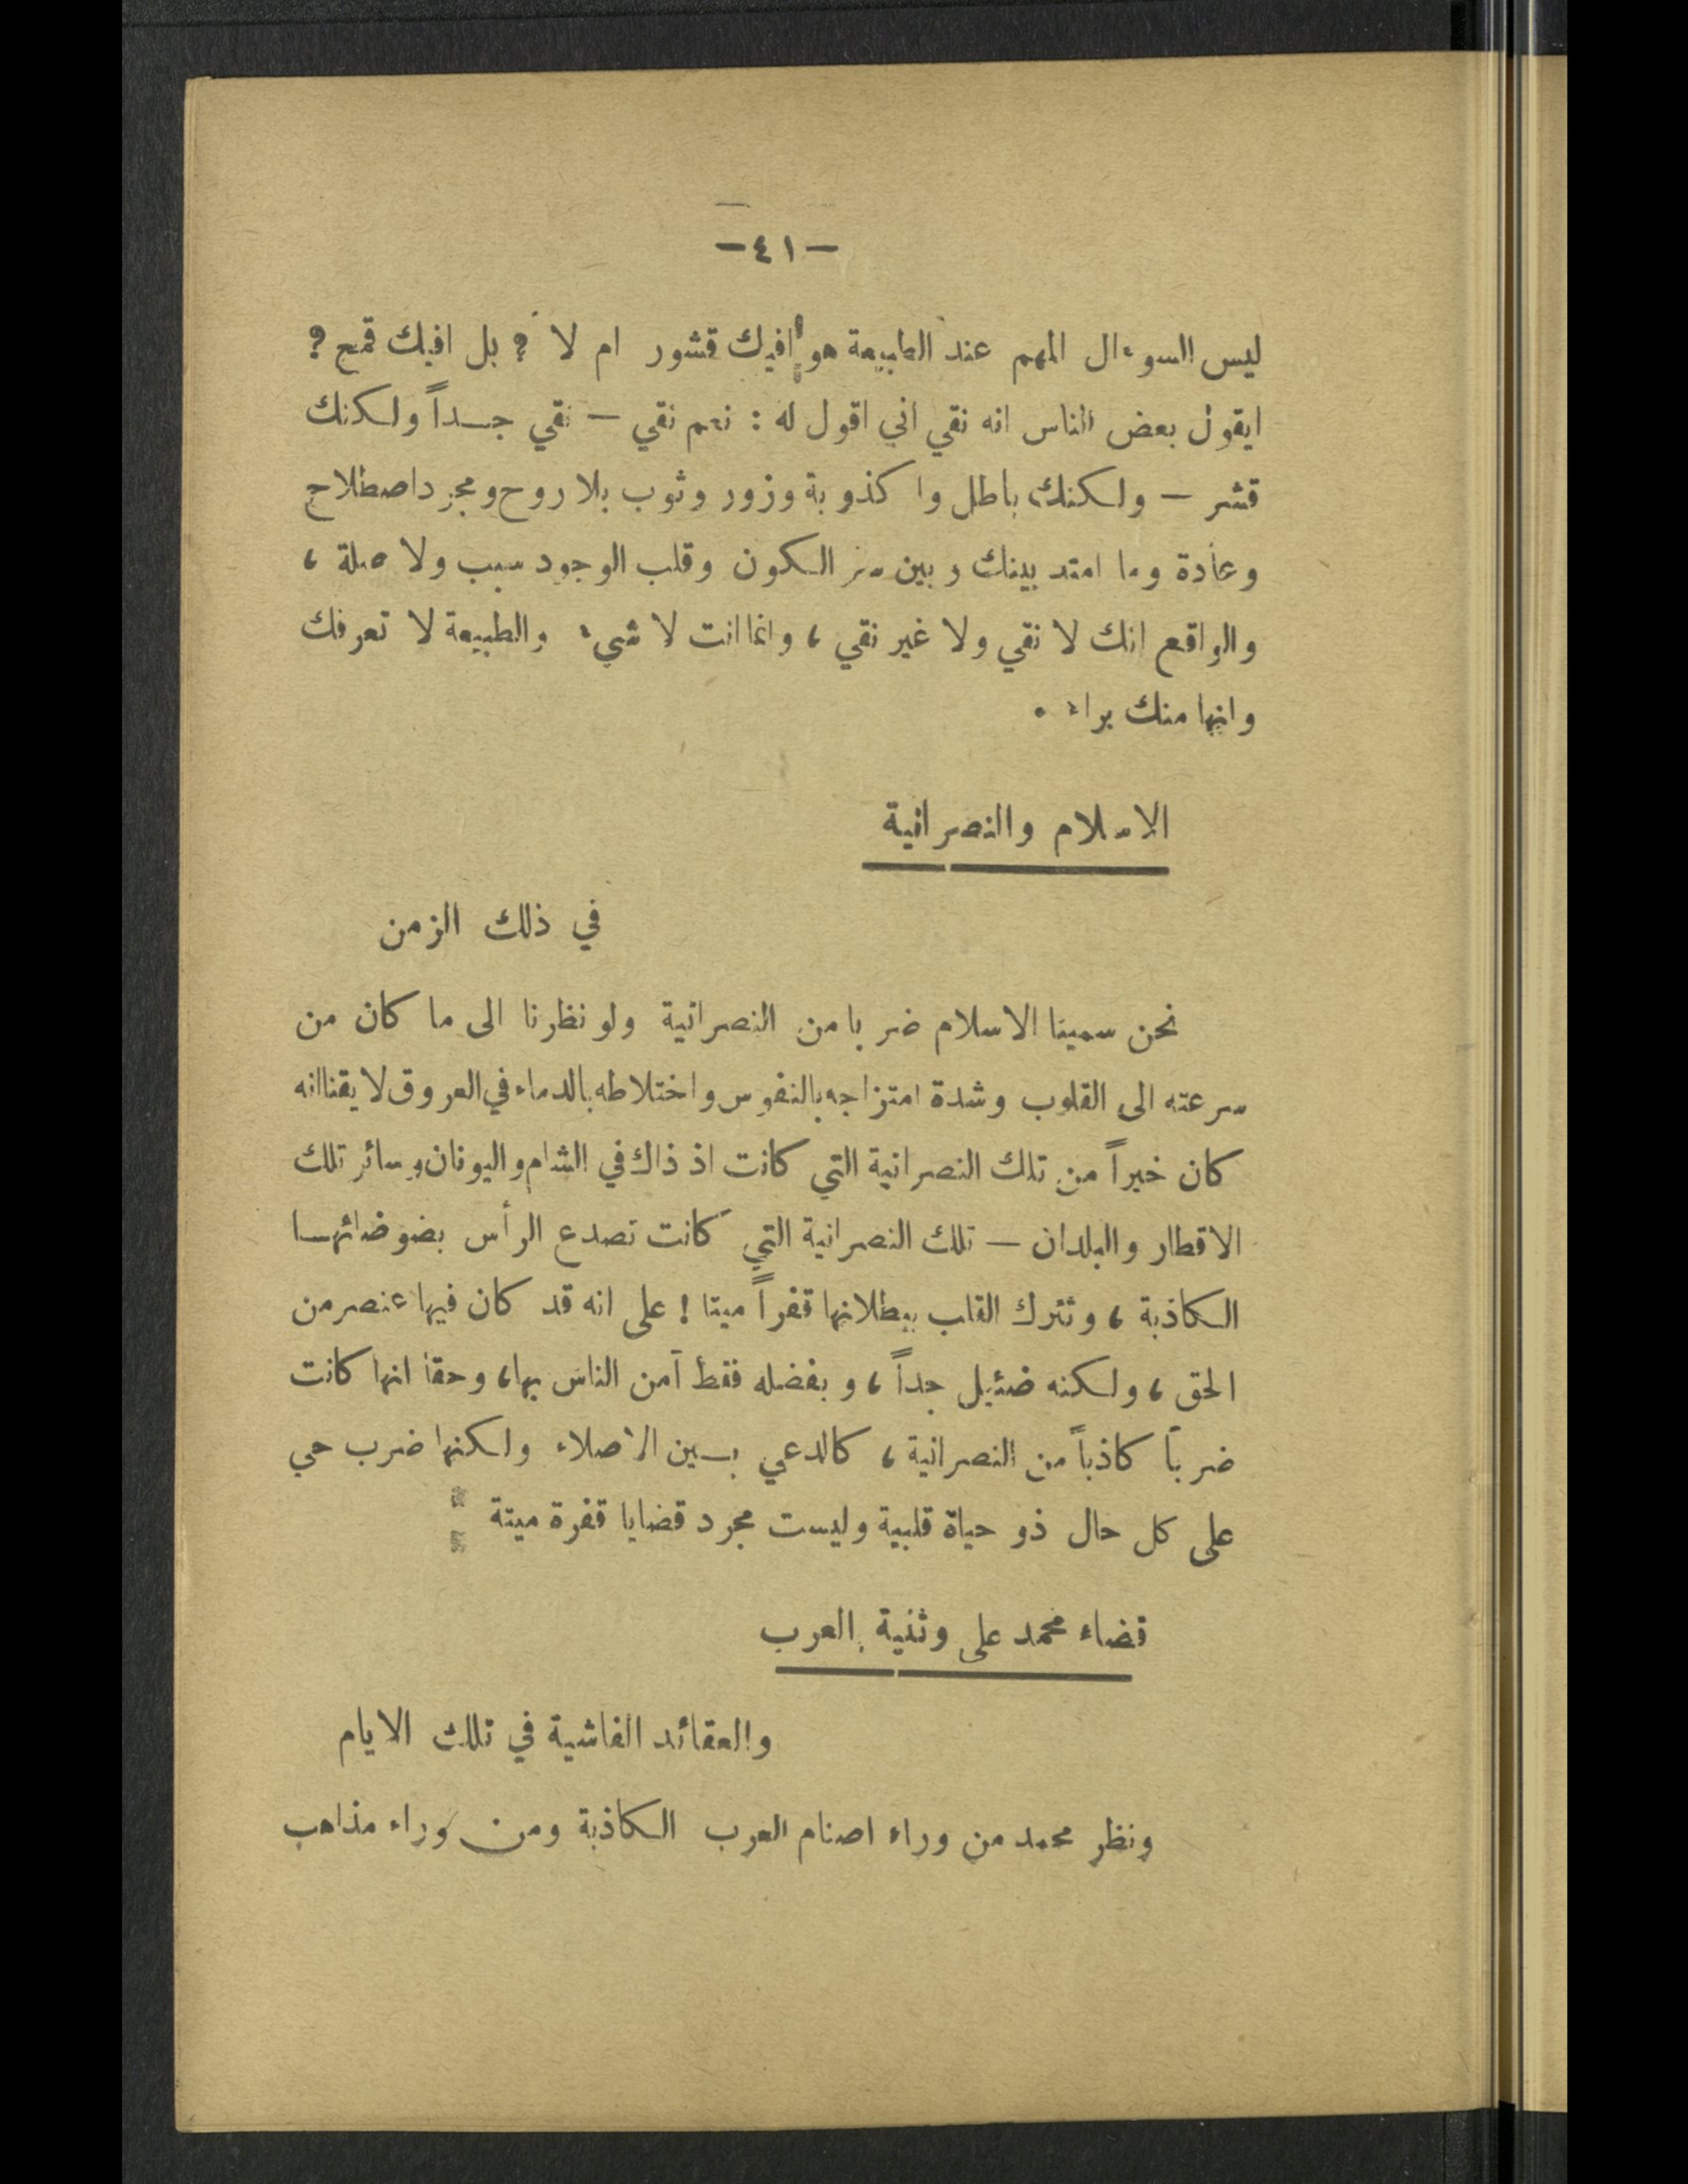 —٤١—
ليس السوءال المهم عند الطبيعة هو افيك قشور ام لا ؟ بل افيك قمح ؟
ايقول بعض الناس انه نقي اني اقول له : نعم نقي — نقي جداً ولكنك
قشر — ولكنك باطل واكذوبة وزور وثوب بلا روح ومجرد اصطلاح
وعادة وما امتد بينك وبين سر الكون وقلب الوجود سبب ولا صلة ،
والواقع انك لا نقي ولا غير نقي ، وانما انت لا شيء والطبيعة لا تعرفك
وانها منك براء .
الاسلام والنصرانية
في ذلك الزمن
نحن سمينا الاسلام ضربا من النصرانية ولو نظرنا الى ما كان من
سرعته الى القلوب وشدة امتزاجه بالنفوس واختلاطه بالدماء في العروق لايقنا انه
كان خيراً من تلك النصرانية التي كانت اذ ذاك في الشام واليونان وسائر تلك
الاقطار والبلدان — تلك النصرانية التي كانت تصدع الرأس بضوضائها
الكاذبة ، وتترك القلب ببطلانها قفراً ميتا ! على انه قد كان فيها عنصر من
الحق ، ولكنه ضئيل جداً ، وبفضله فقط آمن الناس بها ، وحقا انها كانت
ضرباً كاذباً من النصرانية ، كالدعي بين الاصلاء ولكنها ضرب حي
على كل حال ذو حياة قلبية وليست مجرد قضايا قفرة ميتة
قضاء محمد على وثنية العرب
والعقائد الفاشية في تلك الايام
ونظر محمد من وراء اصنام العرب الكاذبة ومن وراء مذاهب